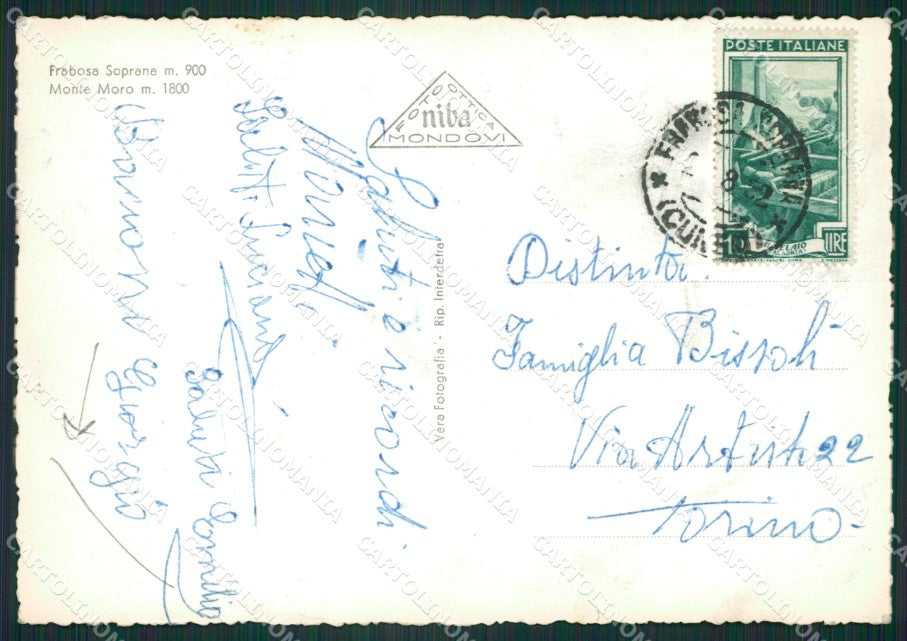 Frabosa Soprana m. 900
Monte Moro m. 1800
FOTO OTTICA
niba
MONDOVI
POSTE ITALIANE
LIRE
FRABOSA SOPRANA
(CUNEO)
Vera Fotografia - Rip. Interdetta
Saluti e ricordi
Saluti Luciano
Saluti Emilio
Giorgio
Distinta
Famiglia
Via Artisti 22
Torino
CARTOLINOMANIA